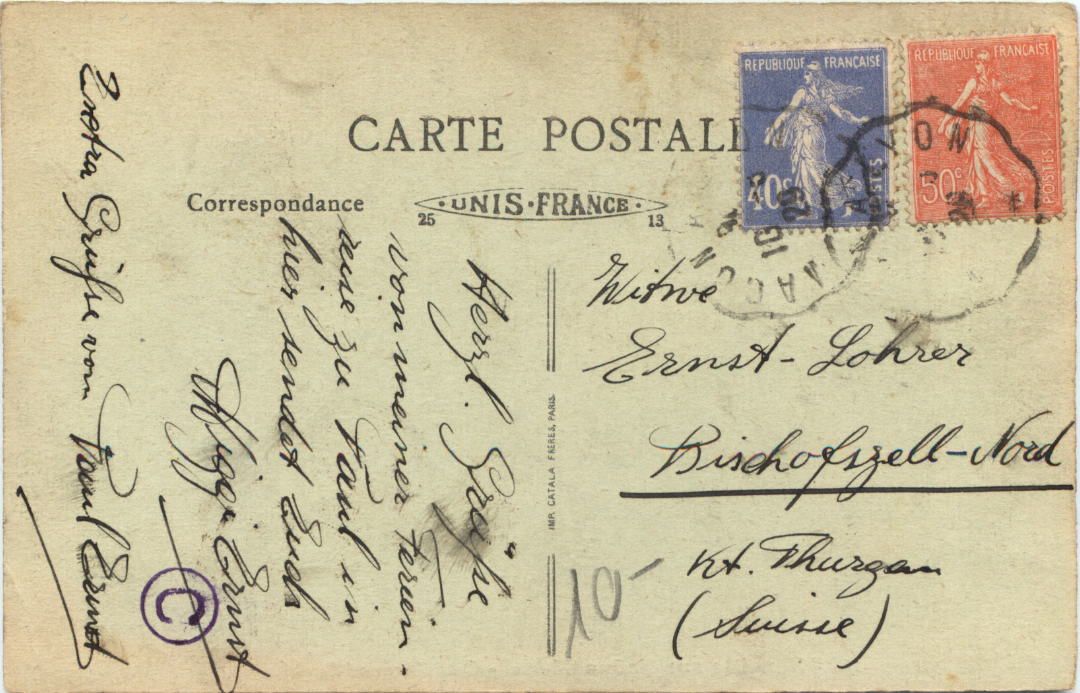 CARTE POSTALE
Correspondance
25 UNIS-FRANCE 13
REPUBLIQUE FRANÇAISE
40c
POSTES
REPUBLIQUE FRANÇAISE
50c
POSTES
Herzl. Grüße
von meiner Ferien-
reise zu Paul in
hier sendet Euch
Ernst
Extra Grüsse von Paul Ernst
IMP. CATALA FRERES, PARIS
Witwe
Ernst-Lohrer
Bischofszell-Nord
Kt. Thurgau
(Suisse)
10-
C